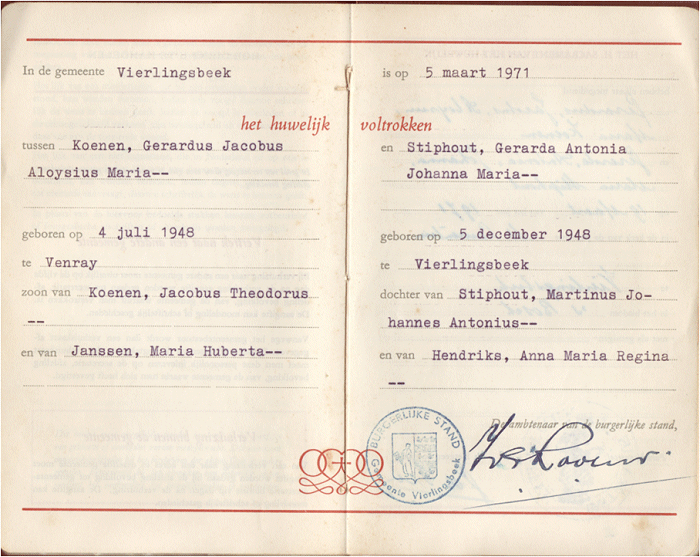 In de gemeente Vierlingsbeek
is op 5 maart 1971
het huwelijk voltrokken
tussen Koenen, Gerardus Jacobus
Aloysius Maria--
en Stiphout, Gerarda Antonia
Johanna Maria--
geboren op 4 juli 1948
te Venray
zoon van Koenen, Jacobus Theodorus
--
en van Janssen, Maria Huberta--
geboren op 5 december 1948
te Vierlingsbeek
dochter van Stiphout, Martinus Jo-
hannes Antonius--
en van Hendriks, Anna Maria Regina
--
De ambtenaar van de burgerlijke stand,
BURGERLIJKE STAND
Gemeente Vierlingsbeek